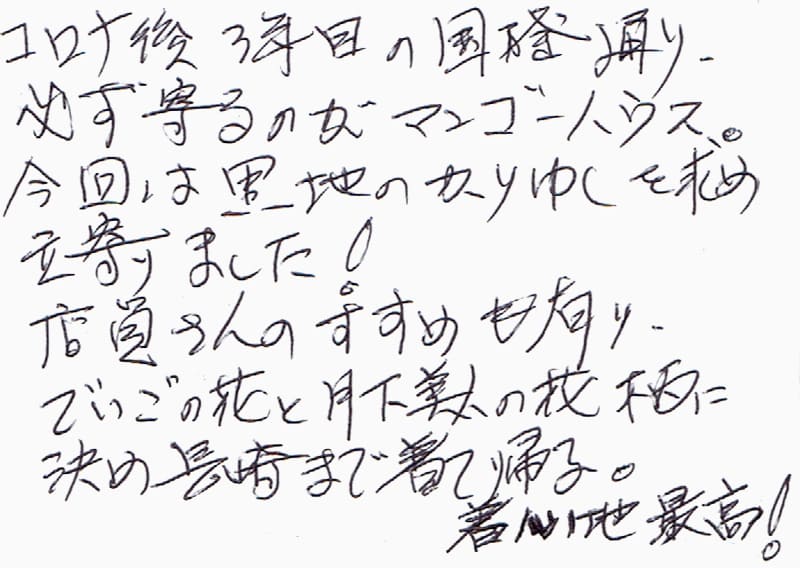 コロナ後3年目の国際通り、
必ず寄るのがマンゴーハウス。
今回は黒地のかりゆしを求め
立寄りました!
店員さんのすすめも有り、
でいごの花と月下美人の花柄に
決め長崎まで着て帰る。
着心地最高!